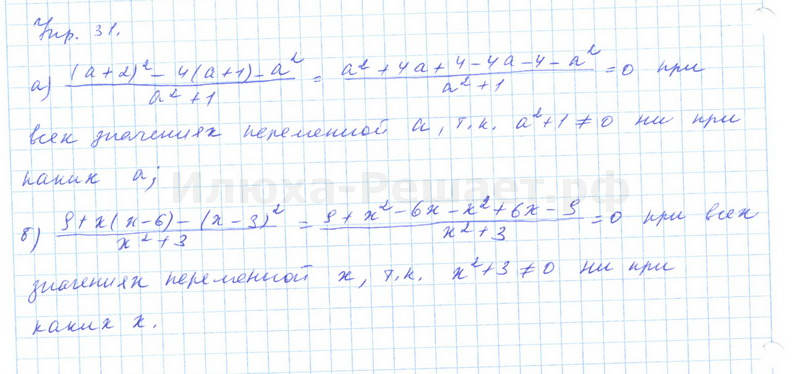 Упр. 31.
а) ((a+2)² - 4(a+1) - a²)/(a²+1) = (a² + 4a + 4 - 4a - 4 - a²)/(a²+1) = 0 при
всех значениях переменной a, т.к. a²+1 ≠ 0 ни при
каких a;
Илюха-Решает.рф
б) (9 + x(x-6) - (x-3)²)/(x²+3) = (9 + x² - 6x - x² + 6x - 9)/(x²+3) = 0 при всех
значениях переменной x, т.к. x²+3 ≠ 0 ни при
каких x.